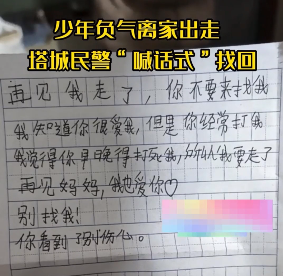 少年负气离家出走
塔城民警“喊话式”找回
再见我走了，你不要来找我
我知道你很爱我，但是你经常打我
我觉得你早晚得打死我，所以我要走了
再见妈妈，我也爱你♡
别找我！
你看到了别伤心。